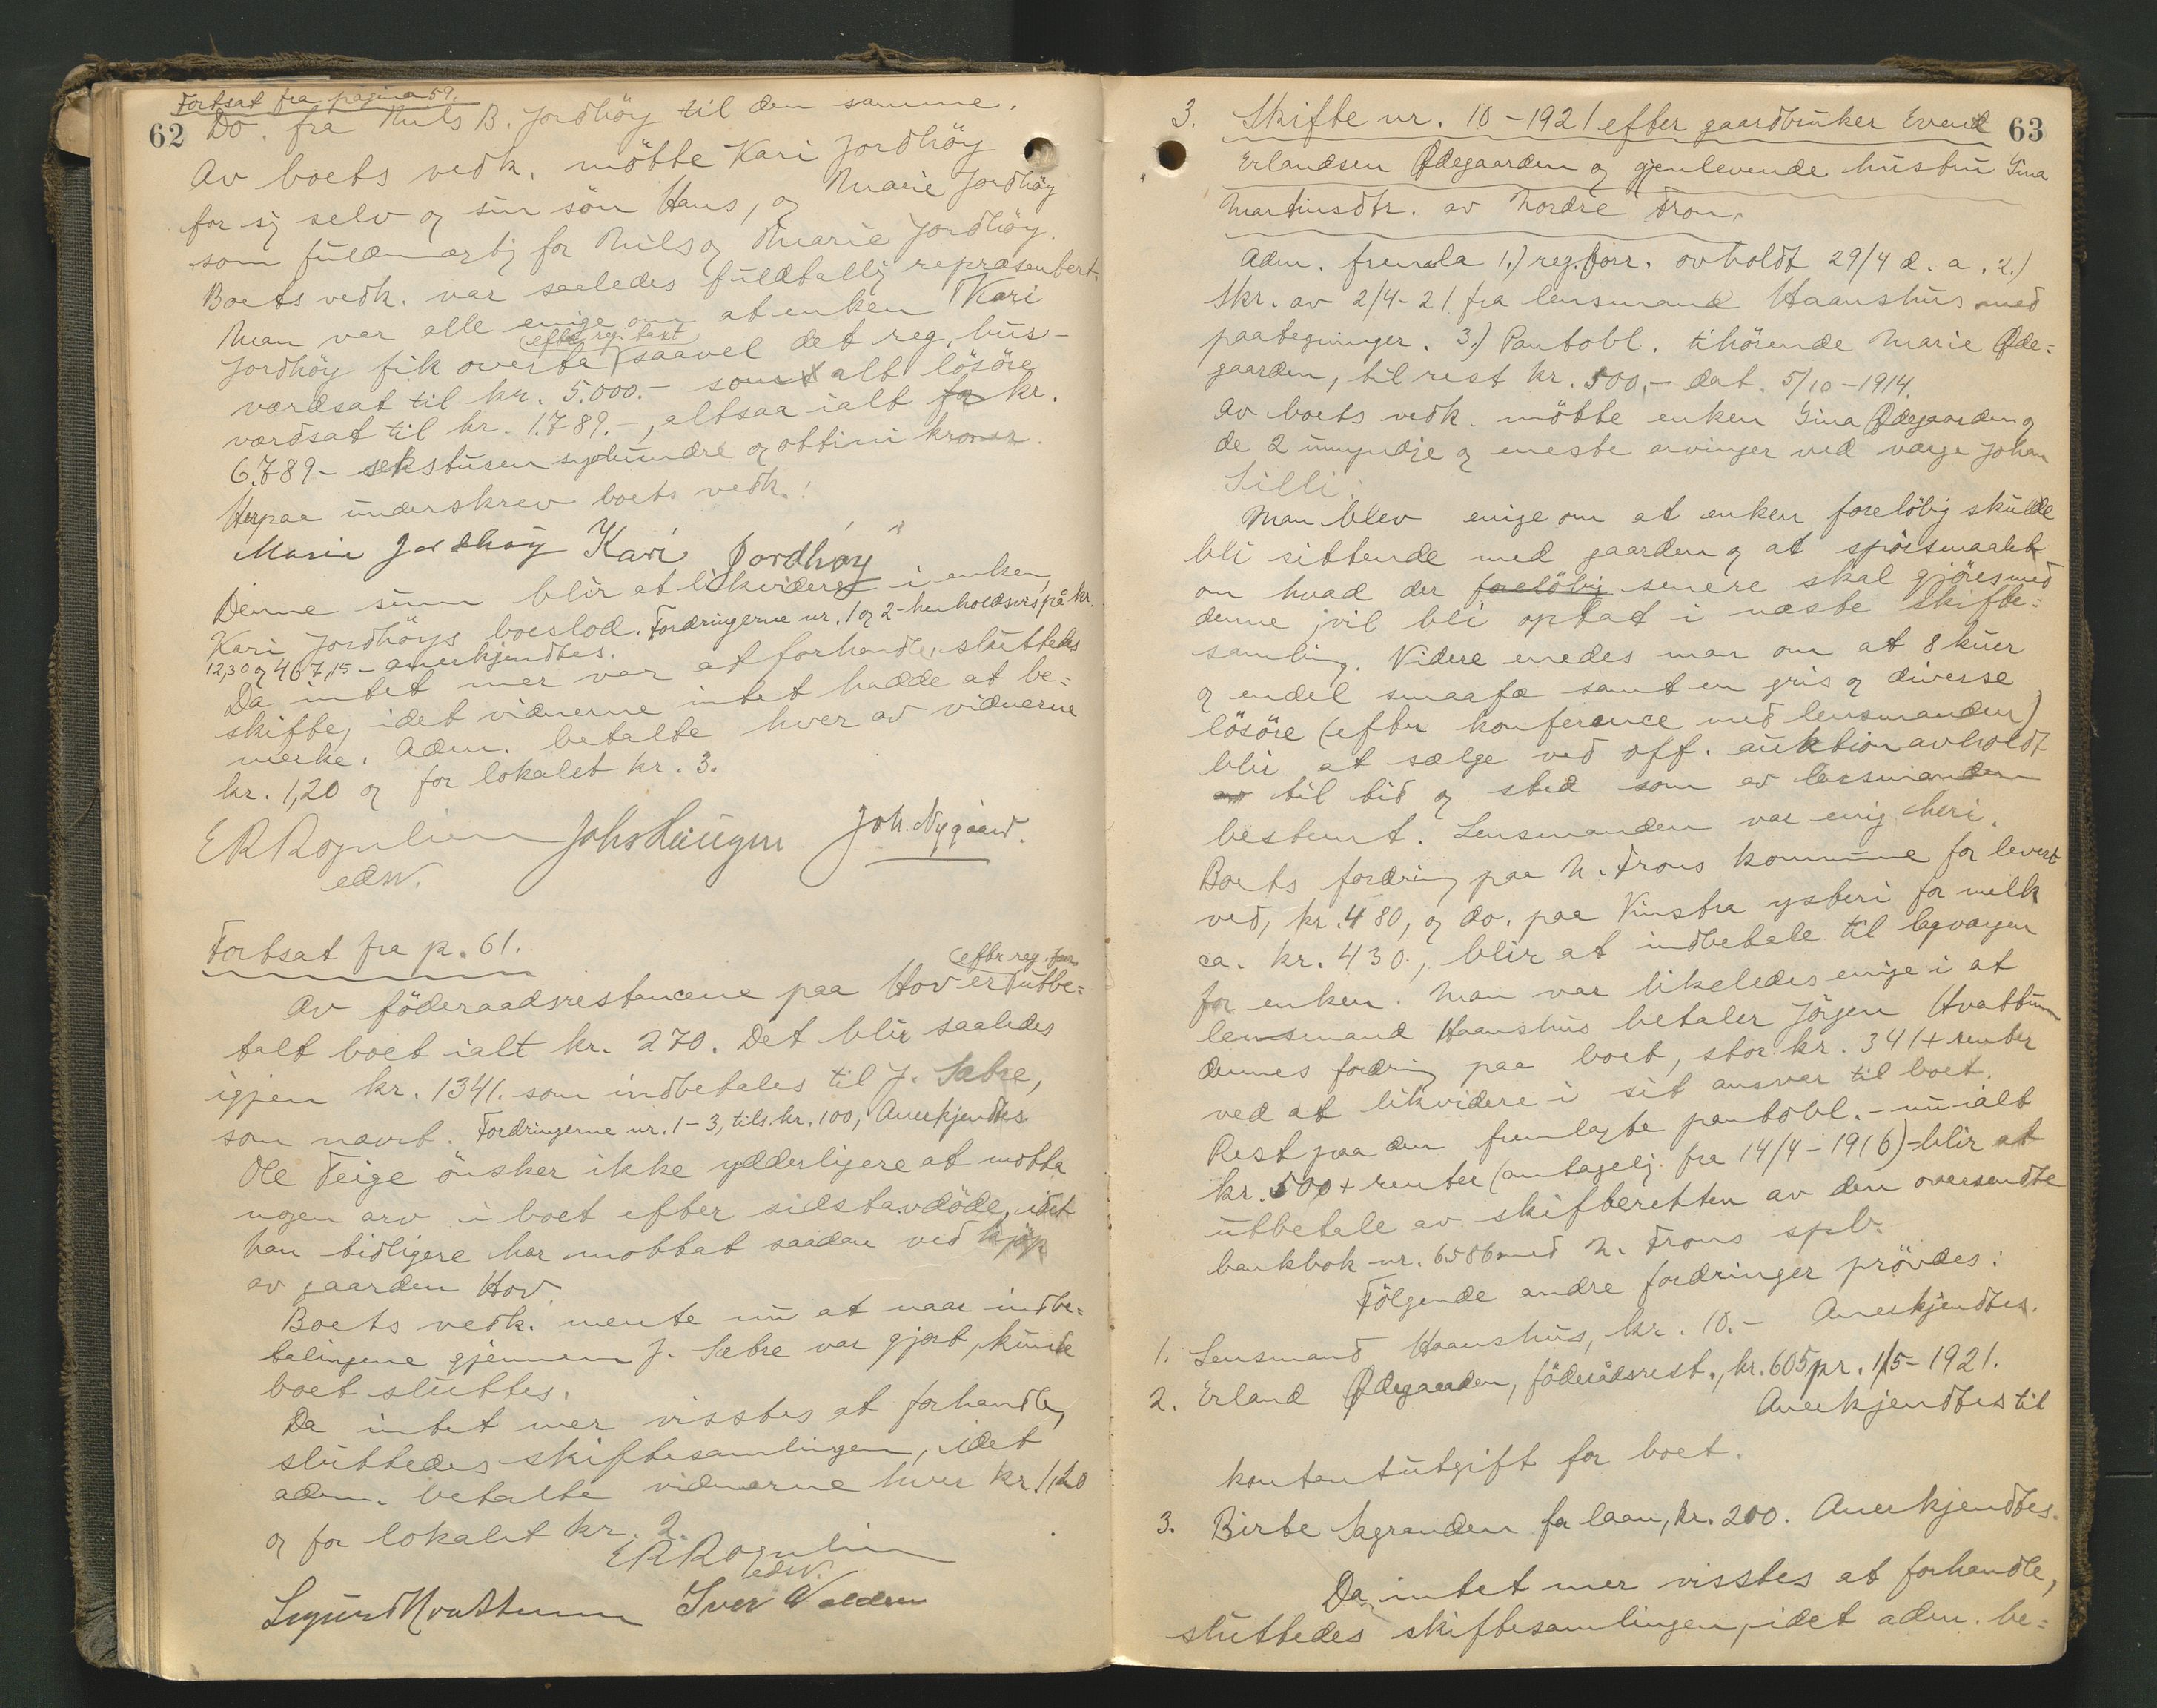 Fortsat fra pagina 59.
62
Do. fra Nils B. Jordhöy til den samme.
Av boets vedk. mötte Kari Jordhöy
for sig selv og sin sön Hans, og Marie Jordhöy
som fuldmægtig for Nils og Marie Jordhöy.
Boets vedk. var saaledes fuldtallig repræsentert.
Man var alle enige om at enken Kari
(efter reg. takst
Jordhöy fik overta saavel det reg. hus-
værdsat til kr. 5.000.- som alt lösöre
værdsat til kr. 1.789.-, altsaa ialt for kr.
6.789- sekstusen syvhundre og ottini kroner.
Herpaa underskrev boets vedk.:
Marie Jordhöy Kari Jordhöy
Denne sum blir at likvidere i enken
Kari Jordhöys boeslod. Fordringerne nr. 1 og 2 - henholdsvis på kr.
12,30 og 467,15 - anerkjendtes.
Da intet mer var at forhandle, sluttedes
skifte, idet vidnerne intet hadde at be=
merke. Adm. betalte hver av vidnerne
kr. 1,20 og for lokalet kr. 3.
E R Rognlien Johs Haugen Joh. Nygaard.
edsv.
Fortsat fra p. 61.
(efter reg. forr.
Av föderaadsrestancene paa Hov er utbe=
talt boet ialt kr. 270. Det blir saaledes
igjen kr. 1341. som indbetales til J. Sætre,
som nævnt. Fordringerne nr. 1-3, tils. kr. 100, Anerkjendtes
Ole Teige önsker ikke ydderligere at motta
nogen arv i boet efter sidstavdöde, idet
han tidligere har mottat saadan ved kjöp
av gaarden Hov.
Boets vedk. mente nu at naar indbe=
talingene gjennem J. Sætre var gjort, kunde
boet sluttes.
Da intet mer visstes at forhandle,
sluttedes skiftesamlingen, idet
adm. betalte vidnerne hver kr. 1,20
og for lokalet kr. 2.
E R Rognlien
edsv.
Sigurd Hvattum Iver Volden
63
3. Skifte nr. 10 - 1921 efter gaardbruker Evend
Erlandsen Ødegaarden og gjenlevende hustru Gina
Martinsdtr. av Nordre Fron.
Adm. fremla 1.) reg.forr. avholdt 29/4 d. a. 2.)
Skr. av 2/4-21 fra lensmand Haanshus med
paategninger. 3.) Pantobl. tihörende Marie Øde=
gaarden, til rest kr. 500,- dat. 5/10-1914.
Av boets vedk. mötte enken Gina Ødegaarden og
de 2 umyndige og eneste arvinger ved værge Johan
Silli.
Man blev enige om at enken forelöbig skulde
bli sittende med gaarden og at spörsmaalet
om hvad der forelöbig senere skal gjöres med
denne vil bli optat i næste skifte=
samling. Videre enedes man om at 8 kuer
og endel smaafæ samt en gris og diverse
lösöre (efter konferance med lensmanden)
blir at sælge ved off. auktion avholdt
til tid og sted som av lensmanden
bestemt. Lensmanden var enig heri.
Boets fordring paa N. Frons kommune for levert
ved, kr. 480, og do. paa Vinstra ysteri for melk
ca. kr. 430, blir at indbetale til lagværgen
for enken. Man var likeledes enige i at
lensmand Haanshus betaler Jörgen Hvattum
dennes fordring paa boet, stor kr. 341 + renter
ved at likvidere i sit ansvar til boet.
Rest paa den fremlagte pantobl. - nu ialt
kr. 500 + renter (antagelig fra 14/4-1916) - blir at
utbetale av skifteretten av den oversendte
bankbok nr. 6586 med N. Frons spb.
Fölgende andre fordringer prövdes:
1. Lensmand Haanshus, kr. 10.- Anerkjendtes.
2. Erland Ødegaarden, föderådsrest., kr. 605 pr. 1/5-1921.
Anerkjendtes til
kontantutgift for boet.
3. Birte Sagranden for laan, kr. 200. Anerkjendtes.
Da intet mer visstes at forhandle,
sluttedes skiftesamlingen, idet adm. be=